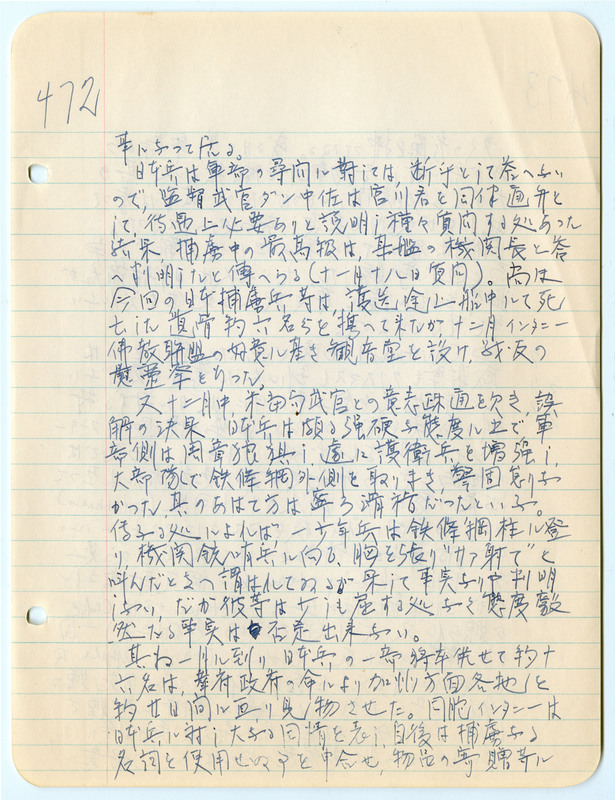 472
事になって居る。
日本兵は軍部の尋問に対しては、断乎として答へない
ので、監督武官ダン中佐は宮川君を同伴通弁と
して、待遇上必要ありと説明し種々質問する処あった
結果、捕虜中の最高級は、母艦の機関長と答
へ判明したと傳へらる(十一月十八日質問)。尚ほ
今回の日本捕虜兵等は、護送途上船中にて死
亡した遺骨約六名らを携へて来たが十二月インタニー
佛教聯盟の好意に基き観音堂を設け、戦友の
慰霊祭をあった。
又十二月中、米 武官との意志疎通を欠き、誤
解の決果 日本兵は頗る強硬な態度に出で軍
部側は周章狼狽し、遽に護衛兵を増強し、
大部隊で鉄條網外側を取りまき、警固怠りな
かった、其のあはて方は寧ろ滑稽だったといふ。
傳ふる処によれば 一少年兵は鉄條網柱に登
り、機関銃哨兵に向ひ、胸を張り"サア射て"と
叫んだとさへ謂はれてゐるが果して事実なりや判明
しない、だが彼等は少しも屈する処なき態度毅
然たる事実は否定出来ない。
其ね一月に到り日本兵の一部将卒併せて約十
六名は、華府政府の命により加州方面各地を
約廿日間に亘り見物させた。同胞インタニーは
日本兵に対し大なる同情を表し、自後は捕虜なる
名詞を使用せぬ事を申合せ、物品の寄贈等に